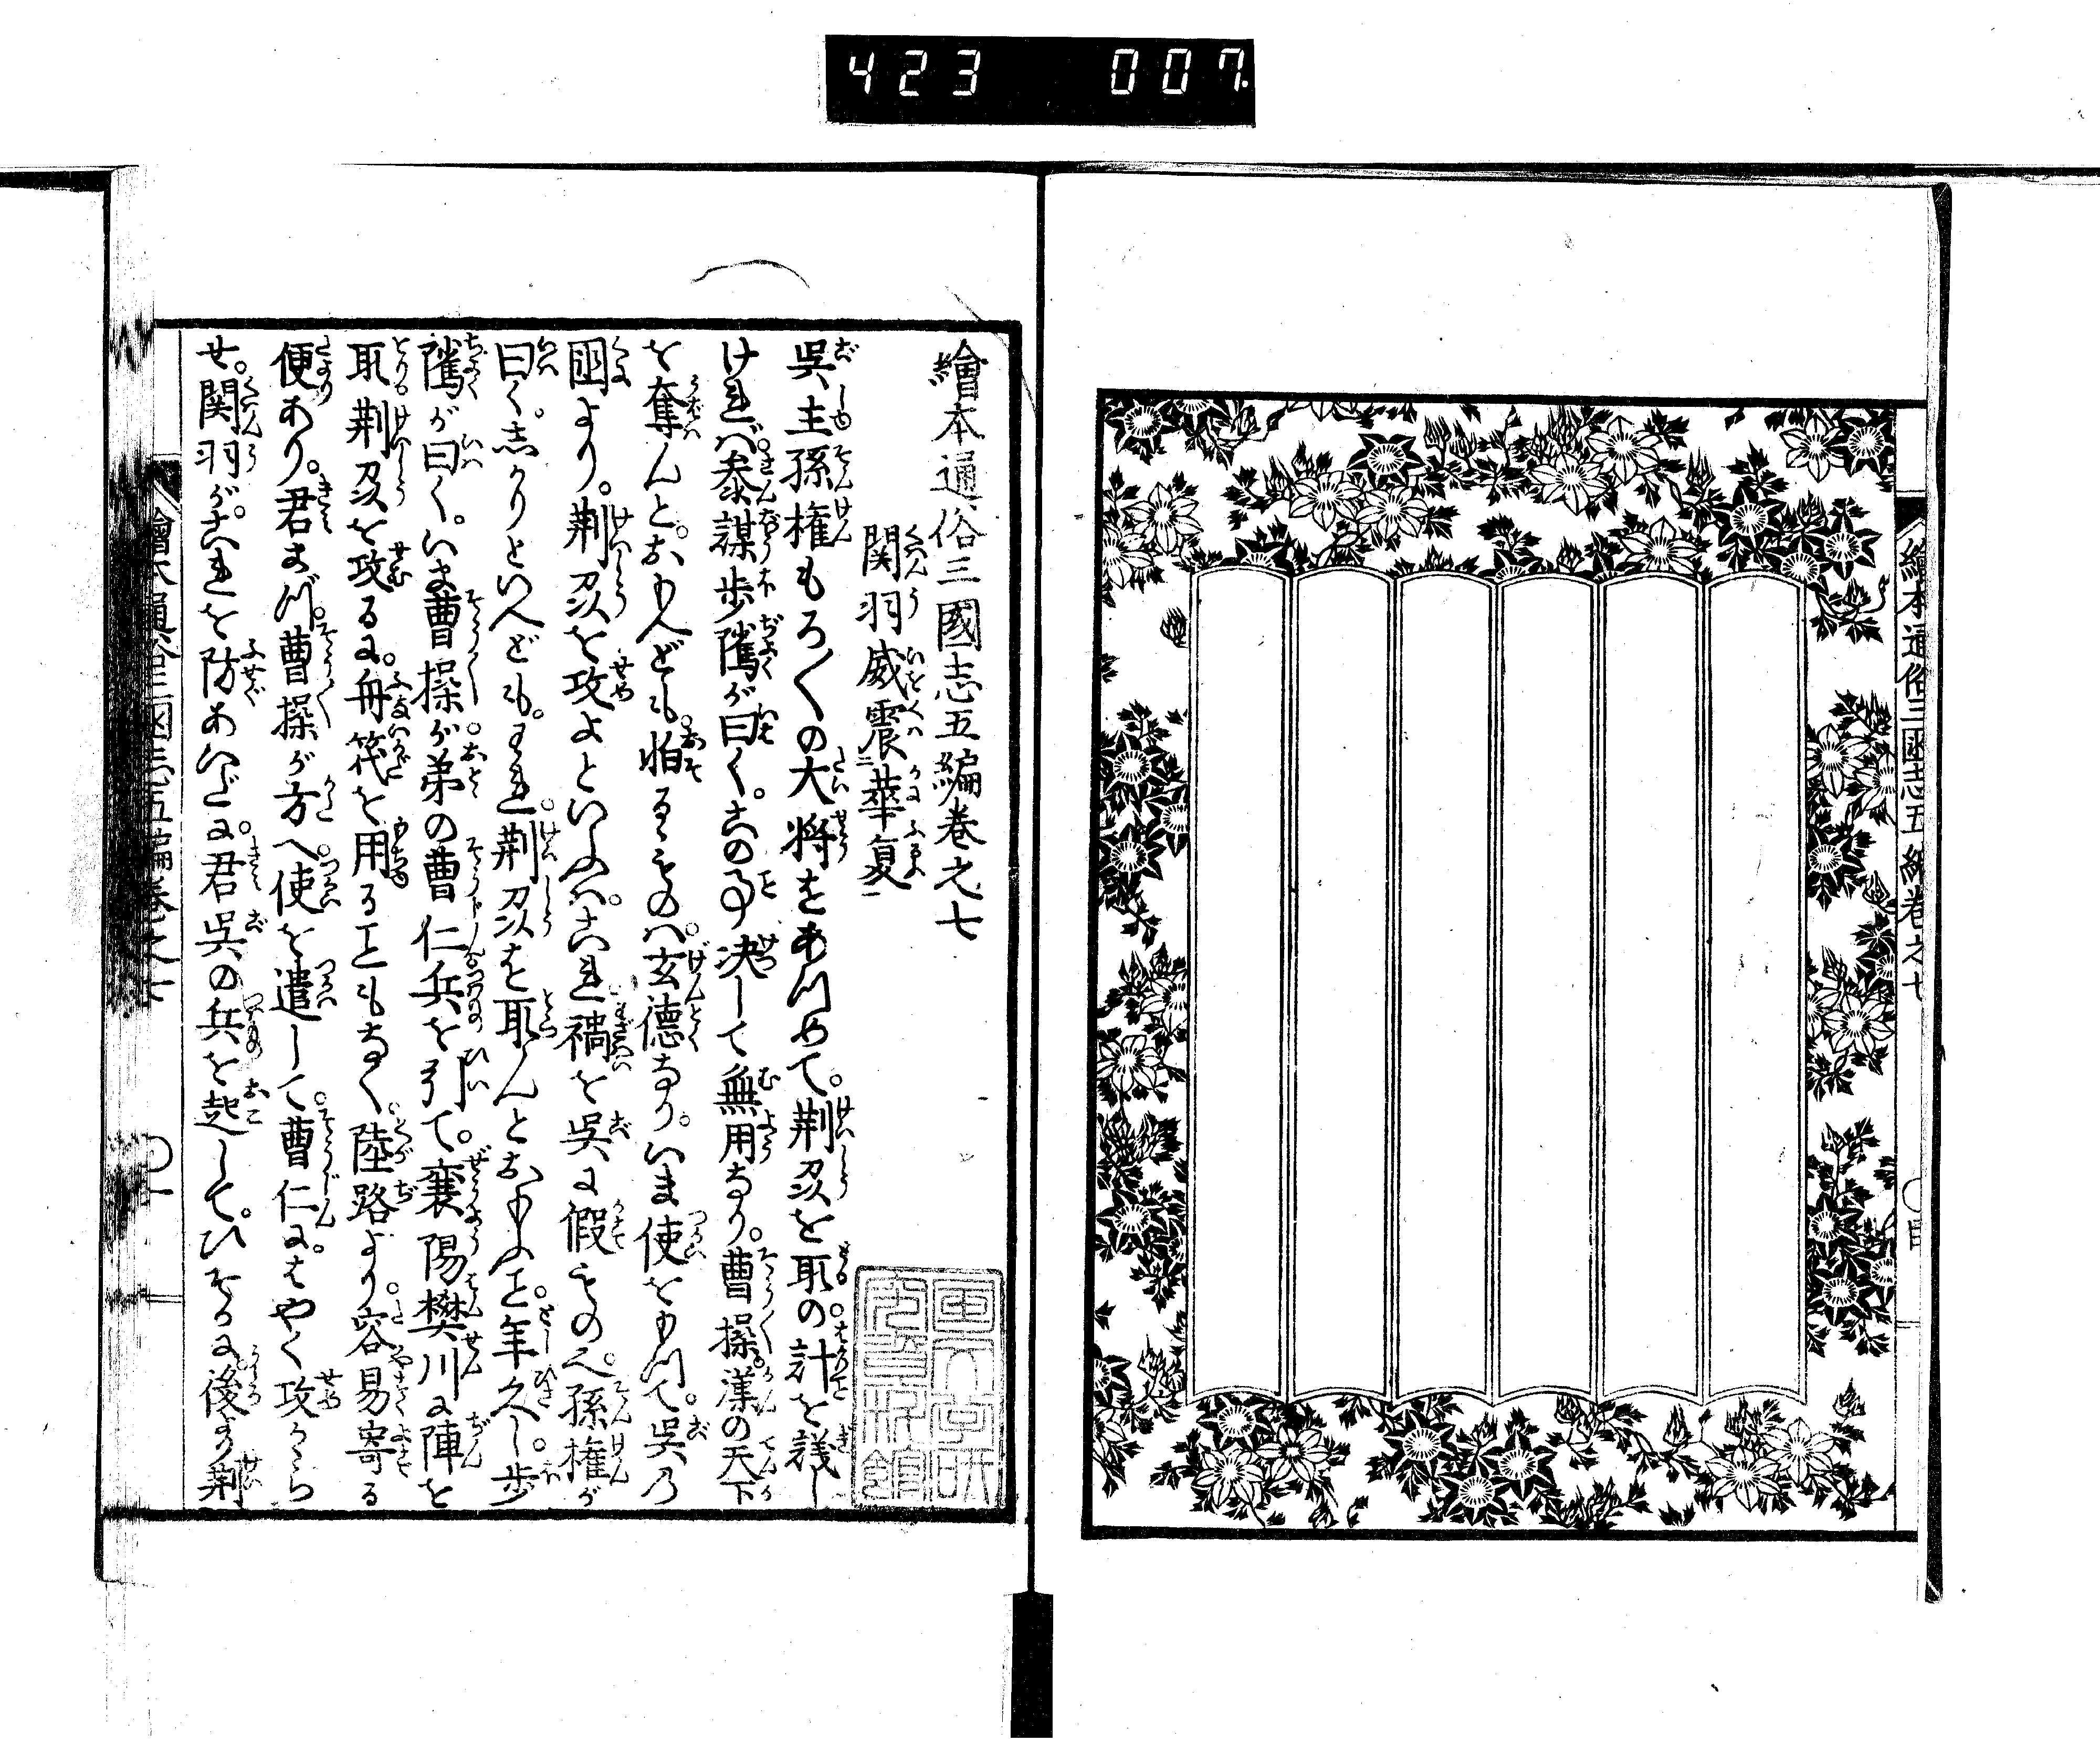 423 007
繪本通俗三國志五編巻之七
繪本通俗三國志五編卷之七
関羽威震二華夏一
呉主孫権もろ〱の大将をあつめて。荊刕を取の計を議し
ければ。参謀歩隲が曰く。この事決して無用なり。曹操漢の天下
を奪んと。おもへども。怕るゝものハ。玄徳なり。いま使をもつて。呉乃
國より。荊刕を攻よといふハ。これ禍を呉に假ものへ。孫権が
曰く。志かりといへども。われ荊刕を取んとおもふこと。年久し。歩
隲が曰く。いま曹操が弟の曹仁兵を引て。襄陽樊川に陣を
取荊刕を攻るに。舟筏を用ることもなく。陸路より。容易寄る
便あり。君まづ。曹操が方へ。使を遣して。曹仁に。はやく攻かゝら
せ。関羽が。これを防あいだに。君呉の兵を起して。ひそかに後より荊